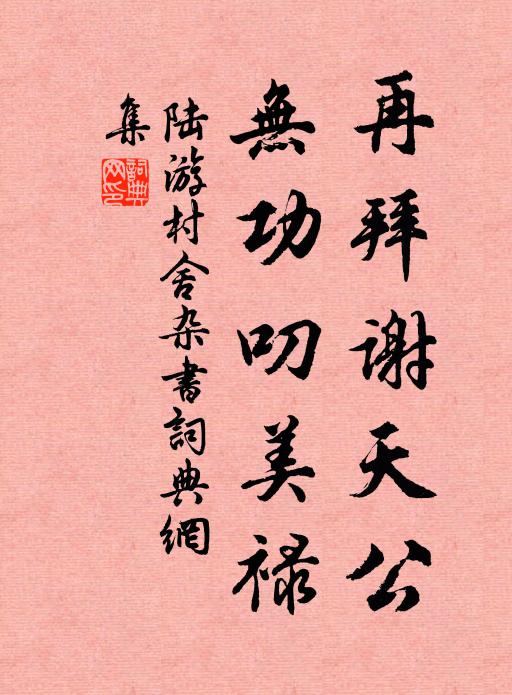 再拜谢天公
無功叨美禄
陆游村舍杂書詞典網
集
詞典
网印